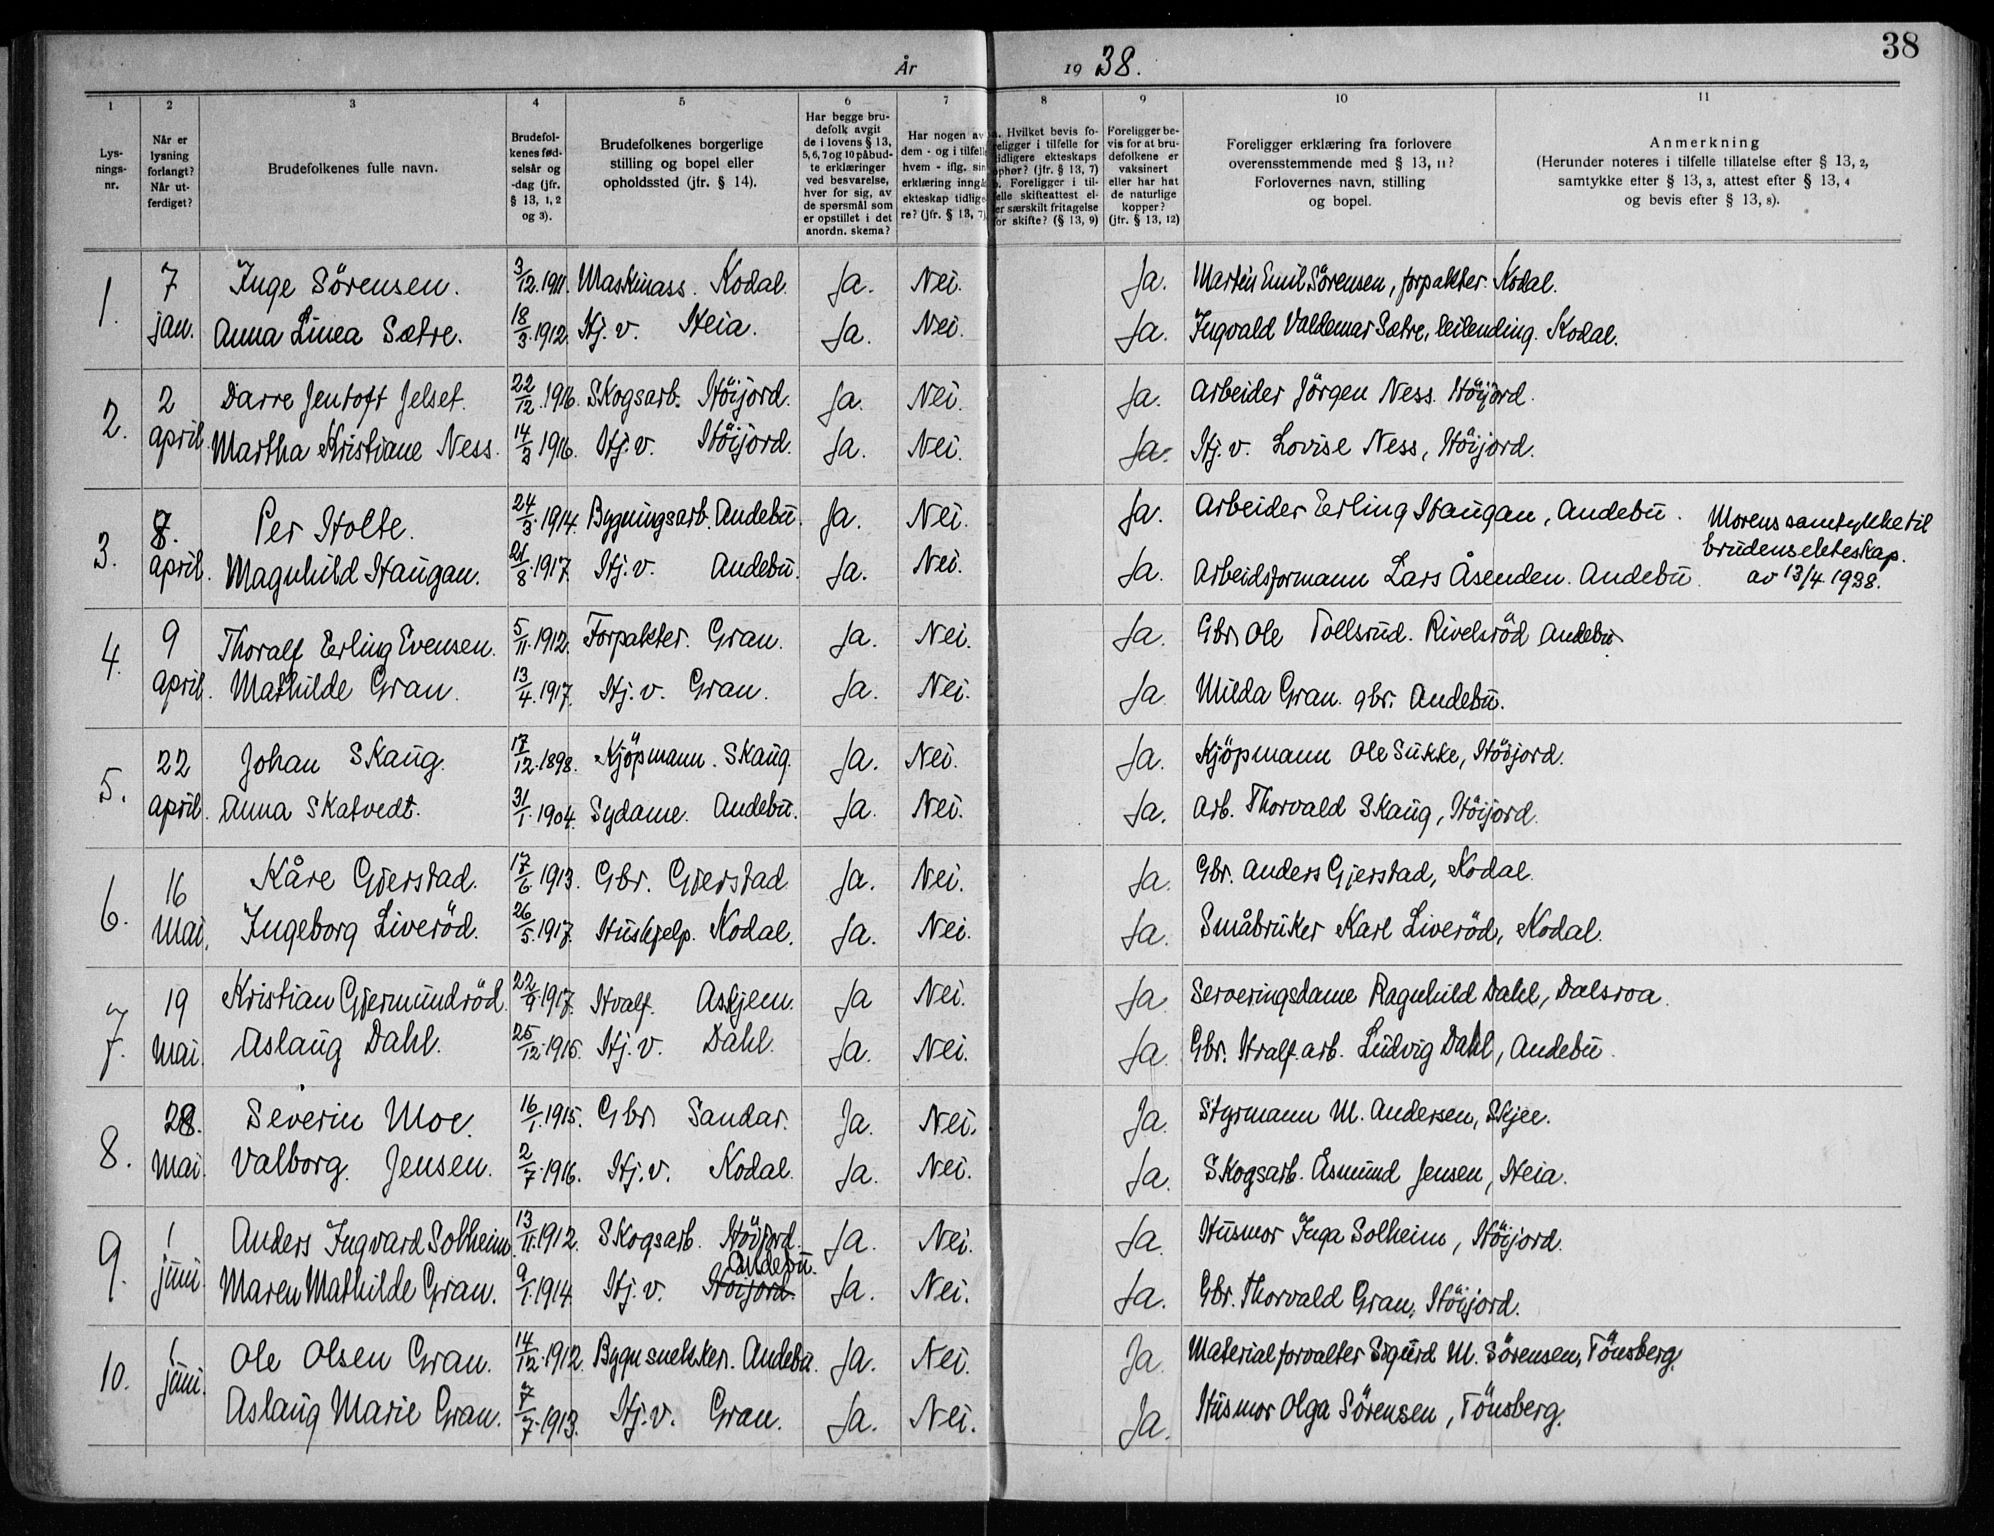 38
År 1938.
1 2 3 4 5 6 7 8 9 10 11
Lys-
nings-
nr.
Når er
lysning
forlangt?
Når ut-
ferdiget?
Brudefolkenes fulle navn.
Brudefol-
kenes fød-
selsår og
-dag (jfr.
§ 13, 1, 2
og 3).
Brudefolkenes borgerlige
stilling og bopel eller
opholdssted (jfr. § 14).
Har begge bru-
defolk avgit
de i lovens § 13,
5, 6, 7 og 10 påbud-
te erklæringer
ved besvarelse,
hver for sig, av
de spørsmål som
er opstillet i det
anordn. skema?
Har nogen av
dem - og i tilfelle
hvem - iflg. sin
erklæring inngåt
ekteskap tidlige-
re? (jfr. § 13, 7).
a. Hvilket bevis fo-
religger i tilfelle for
tidligere ekteskaps
ophør? (jfr. § 13, 7)
b. Foreligger i til-
felle skifteattest el-
er særskilt fritagelse
for skifte? (§ 13, 9)
Foreligger be-
vis for at bru-
defolkene er
vaksinert
eller har hat
de naturlige
kopper?
(jfr. § 13, 12)
Foreligger erklæring fra forlovere
overensstemmende med § 13, 11?
Forlovernes navn, stilling
og bopel.
Anmerkning
(Herunder noteres i tilfelle tillatelse efter § 13, 2,
samtykke efter § 13, 3, attest efter § 13, 4
og bevis efter § 13, 8).
1. 7 Inge Sörensen. 3/12.1911. Maskinass. Kodal. Ja. Nei. Ja. Martin Emil Sörensen, forpakter. Kodal.
jan. Anna Linea Sætre. 18/3.1912. Hj. v. Heia. Ja. Nei. Ja. Ingvald Valdemar Sætre, leilending. Kodal.
2. 2 Darre Jentoft Jelset. 22/12.1916. Skogsarb. Höijord. Ja. Nei. Ja. Arbeider Jörgen Ness. Höijord.
april. Martha Kristiane Ness. 14/3.1916. Hj. v. Höijord. Ja. Nei. Ja. Hj. v. Lovise Ness, Höijord.
3. 8. Per Holte. 24/3.1914. Bygningsarb. Andebu. Ja. Nei. Ja. Arbeider Erling Haugan, Andebu. Morens samtykke til
brudens ekteskap.
april. Magnhild Haugan. 21/8.1917. Hj. v. Andebu. Ja. Nei. Ja. Arbeidsformann Lars Åsenden. Andebu. av 13/4 1938.
4. 9 Thoralf Erling Evensen. 5/11.1912. Forpakter. Gran. Ja. Nei. Ja. Gbr. Ole Tollsrud. Rivelsröd Andebu.
april. Mathilde Gran. 13/4.1917. Hj. v. Gran. Ja. Nei. Ja. Milda Gran. gbr. Andebu.
5. 22 Johan Skaug. 17/12.1898. Kjöpmann. Skaug. Ja. Nei. Ja. Kjöpmann Ole Sukke, Höijord.
april. Anna Skatvedt. 31/1.1904. Sydame. Andebu. Ja. Nei. Ja. Arb. Thorvald Skaug, Höijord.
6. 16 Kåre Gjerstad. 17/6.1913. Gbr. Gjerstad Ja. Nei. Ja. Gbr. Anders Gjerstad, Kodal.
mai. Ingeborg Liveröd. 26/5.1917. Hushjelp. Kodal. Ja. Nei. Ja. Småbruker Karl Liveröd, Kodal.
7. 19 Kristian Gjermundröd. 22/9.1917. Hvalf. Askjem. Ja Nei. Ja. Serveringsdame Ragnhild Dahl, Dalsroa.
mai. Aslaug Dahl. 25/12.1915. Hj. v. Dahl. Ja. Nei. Ja. Gbr. Hvalf. arb. Ludvig Dahl, Andebu.
8. 28. Severin Moe. 16/1.1915. Gbr. Sandar. Ja. Nei. Ja. Styrmann M. Andersen, Skjee.
mai. Valborg Jensen. 2/7.1916. Hj. v. Kodal. Ja. Nei. Ja. Skogsarb. Åsmund Jensen, Heia.
9. 1 Anders Ingvard Solheim. 13/11.1912. Skogsarb. Höijord. Ja. Nei. Ja. Husmor Inga Solheim, Höijord.
Andebu.
juni. Maren Mathilde Gran. 9/1.1914. Hj. v. Höijord. Ja. Nei. Ja. Gbr. Thorvald Gran, Höijord.
10. 1 Ole Olsen Gran. 14/12.1912. Bygnsnekker. Andebu. Ja. Nei. Ja. Materialforvalter Sigurd M. Sörensen, Tönsberg.
juni. Aslaug Marie Gran. 7/7.1913. Hj. v. Gran. Ja. Nei. Ja. Husmor Olga Sörensen, Tönsberg.